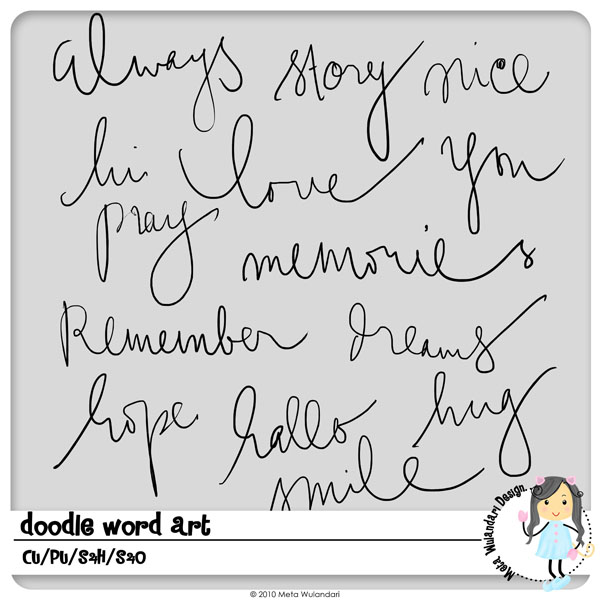 always story nice
hi love you
pray
memories
Remember dreams
hope hallo hug
smile
doodle word art
CU/PU/S4H/S4O
Meta Wulandari Design.
© 2010 Meta Wulandari